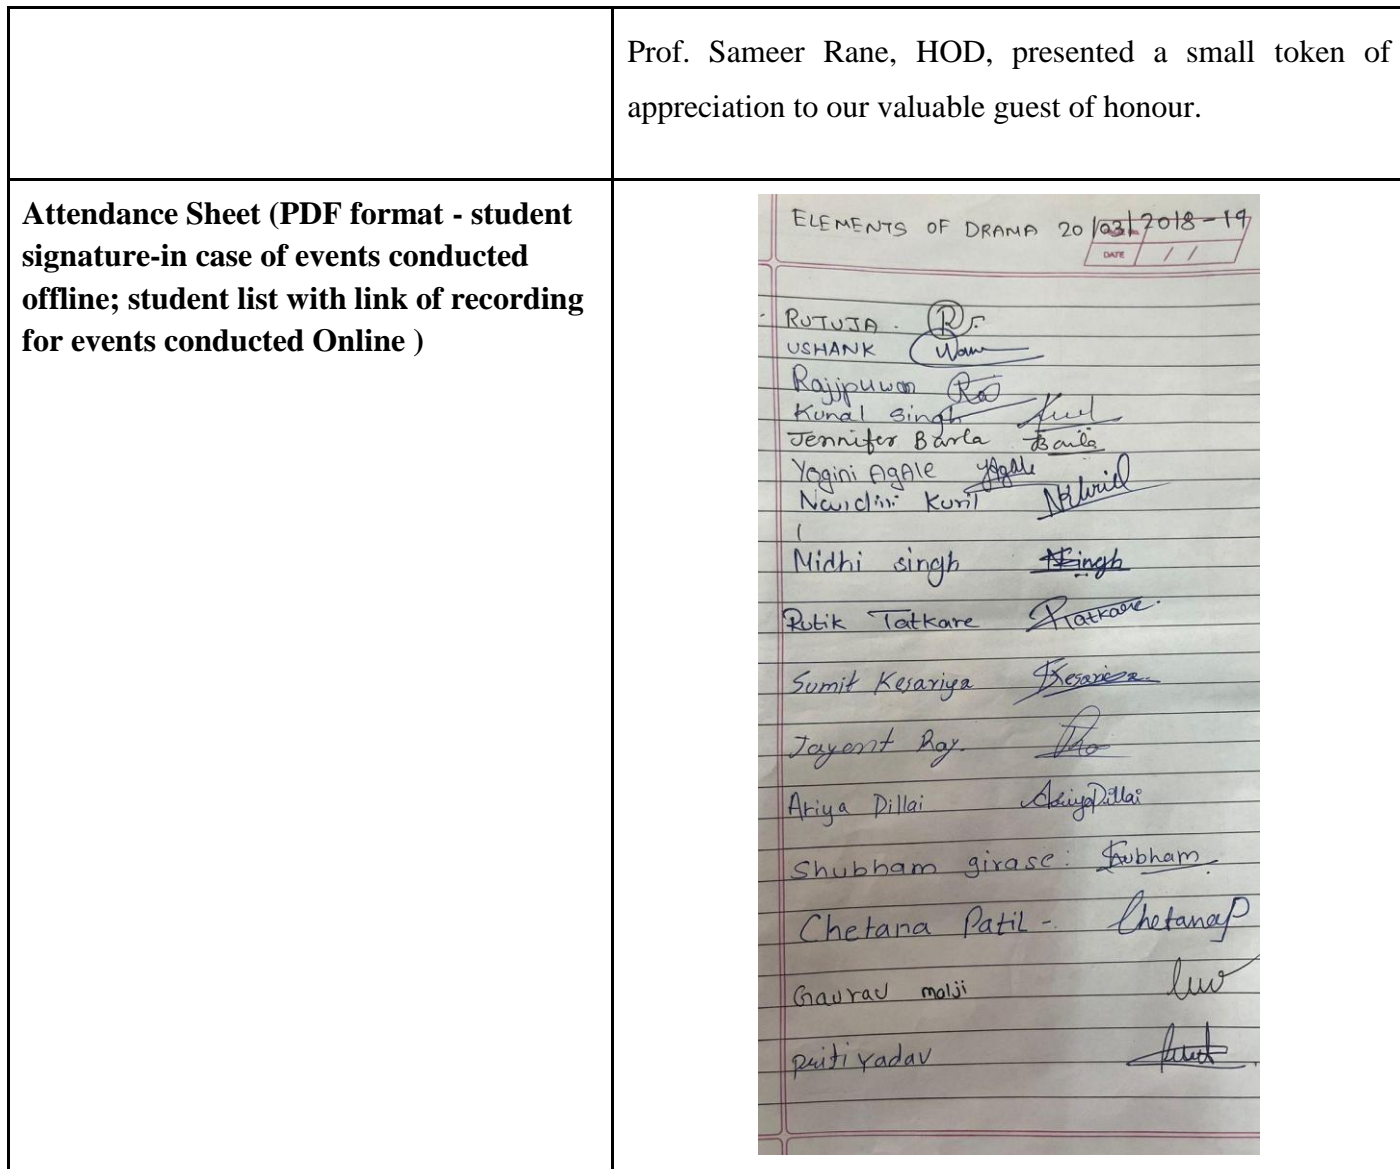 Prof. Sameer Rane, HOD, presented a small token of
appreciation to our valuable guest of honour.
Attendance Sheet (PDF format - student
signature-in case of events conducted
offline; student list with link of recording
for events conducted Online )
ELEMENTS OF DRAMA 20/03/2018-19
DATE / /
RUTUJA . R
USHANK
Rajjpuwan
Kunal Singh
Jennifer Barla Barla
Yogini AgAle YAgale
Kuril NKuril
Midhi singh NSingh
Rutik Tatkare RTatkare.
Sumit Kesariya Kesariya
Jayent Ray.
Ariya Pillai AriyaPillai
Shubham girase: Shubham
Chetana Patil - ChetanaP
Gaurav malji
Priti Yadav